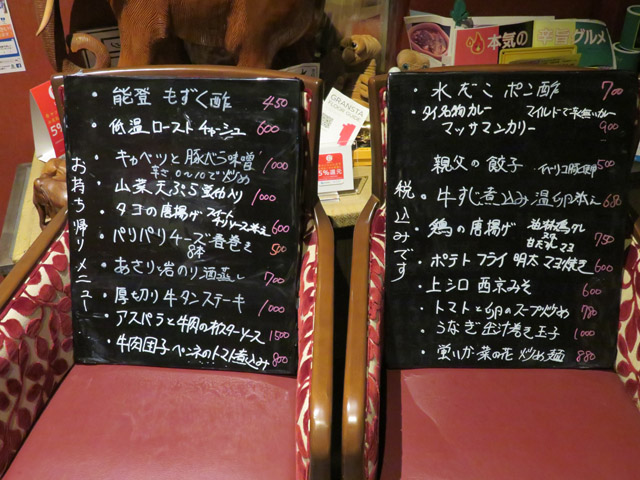 お持ち帰りメニュー
・能登 もずく酢 450
低温ローストチャーシュー 600
・キャベツと豚バラ味噌 1000
辛さ0〜10で炒め
・山菜天ぷら 1000
・タコの唐揚げ スイートチリソース添え 600
・パリパリチーズ春巻き 500
8本
・あさり岩のり酒蒸し 700
・厚切り牛タンステーキ 1000
・アスパラと牛肉のオイスターソース 1500
・牛肉団子ペンネのトマト煮込み 800
税込みです
・水だこポン酢 700
・タイ名物カレー マイルドで辛くないカレー
マッサマンカリー 900
親父の餃子 イベリコ豚使用 500
・牛すじ煮込み温卵添え 680
・鶏の唐揚げ 750
・ポテトフライ明太マヨ焼き 600
・上シロ 西京みそ 600
・トマトと卵のスープ炒め 780
・うなぎ出汁巻き玉子 1000
・蛍いか菜の花炒め麺 880
本気の辛旨グルメ
GRANSTA
FLOOR GUIDE
5%還元